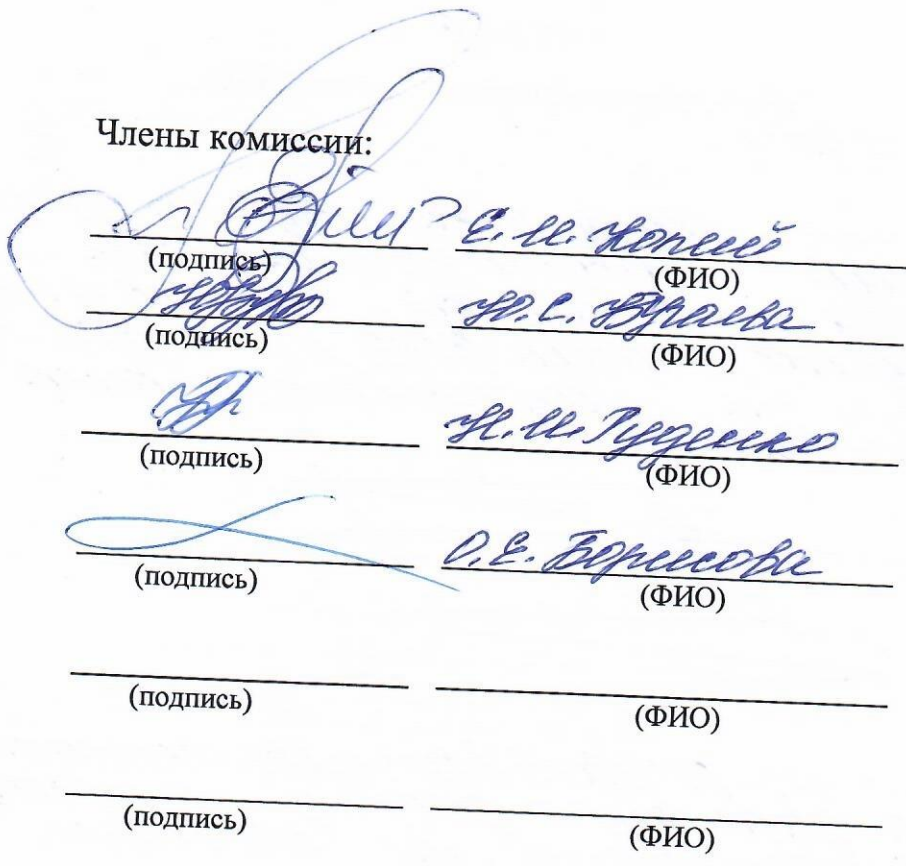 Члены комиссии:
Е. И. Копий
(подпись) (ФИО)
Ю. С.
(подпись) (ФИО)
Н. И. Руденко
(подпись) (ФИО)
О. Е. Борисова
(подпись) (ФИО)
(подпись) (ФИО)
(подпись) (ФИО)